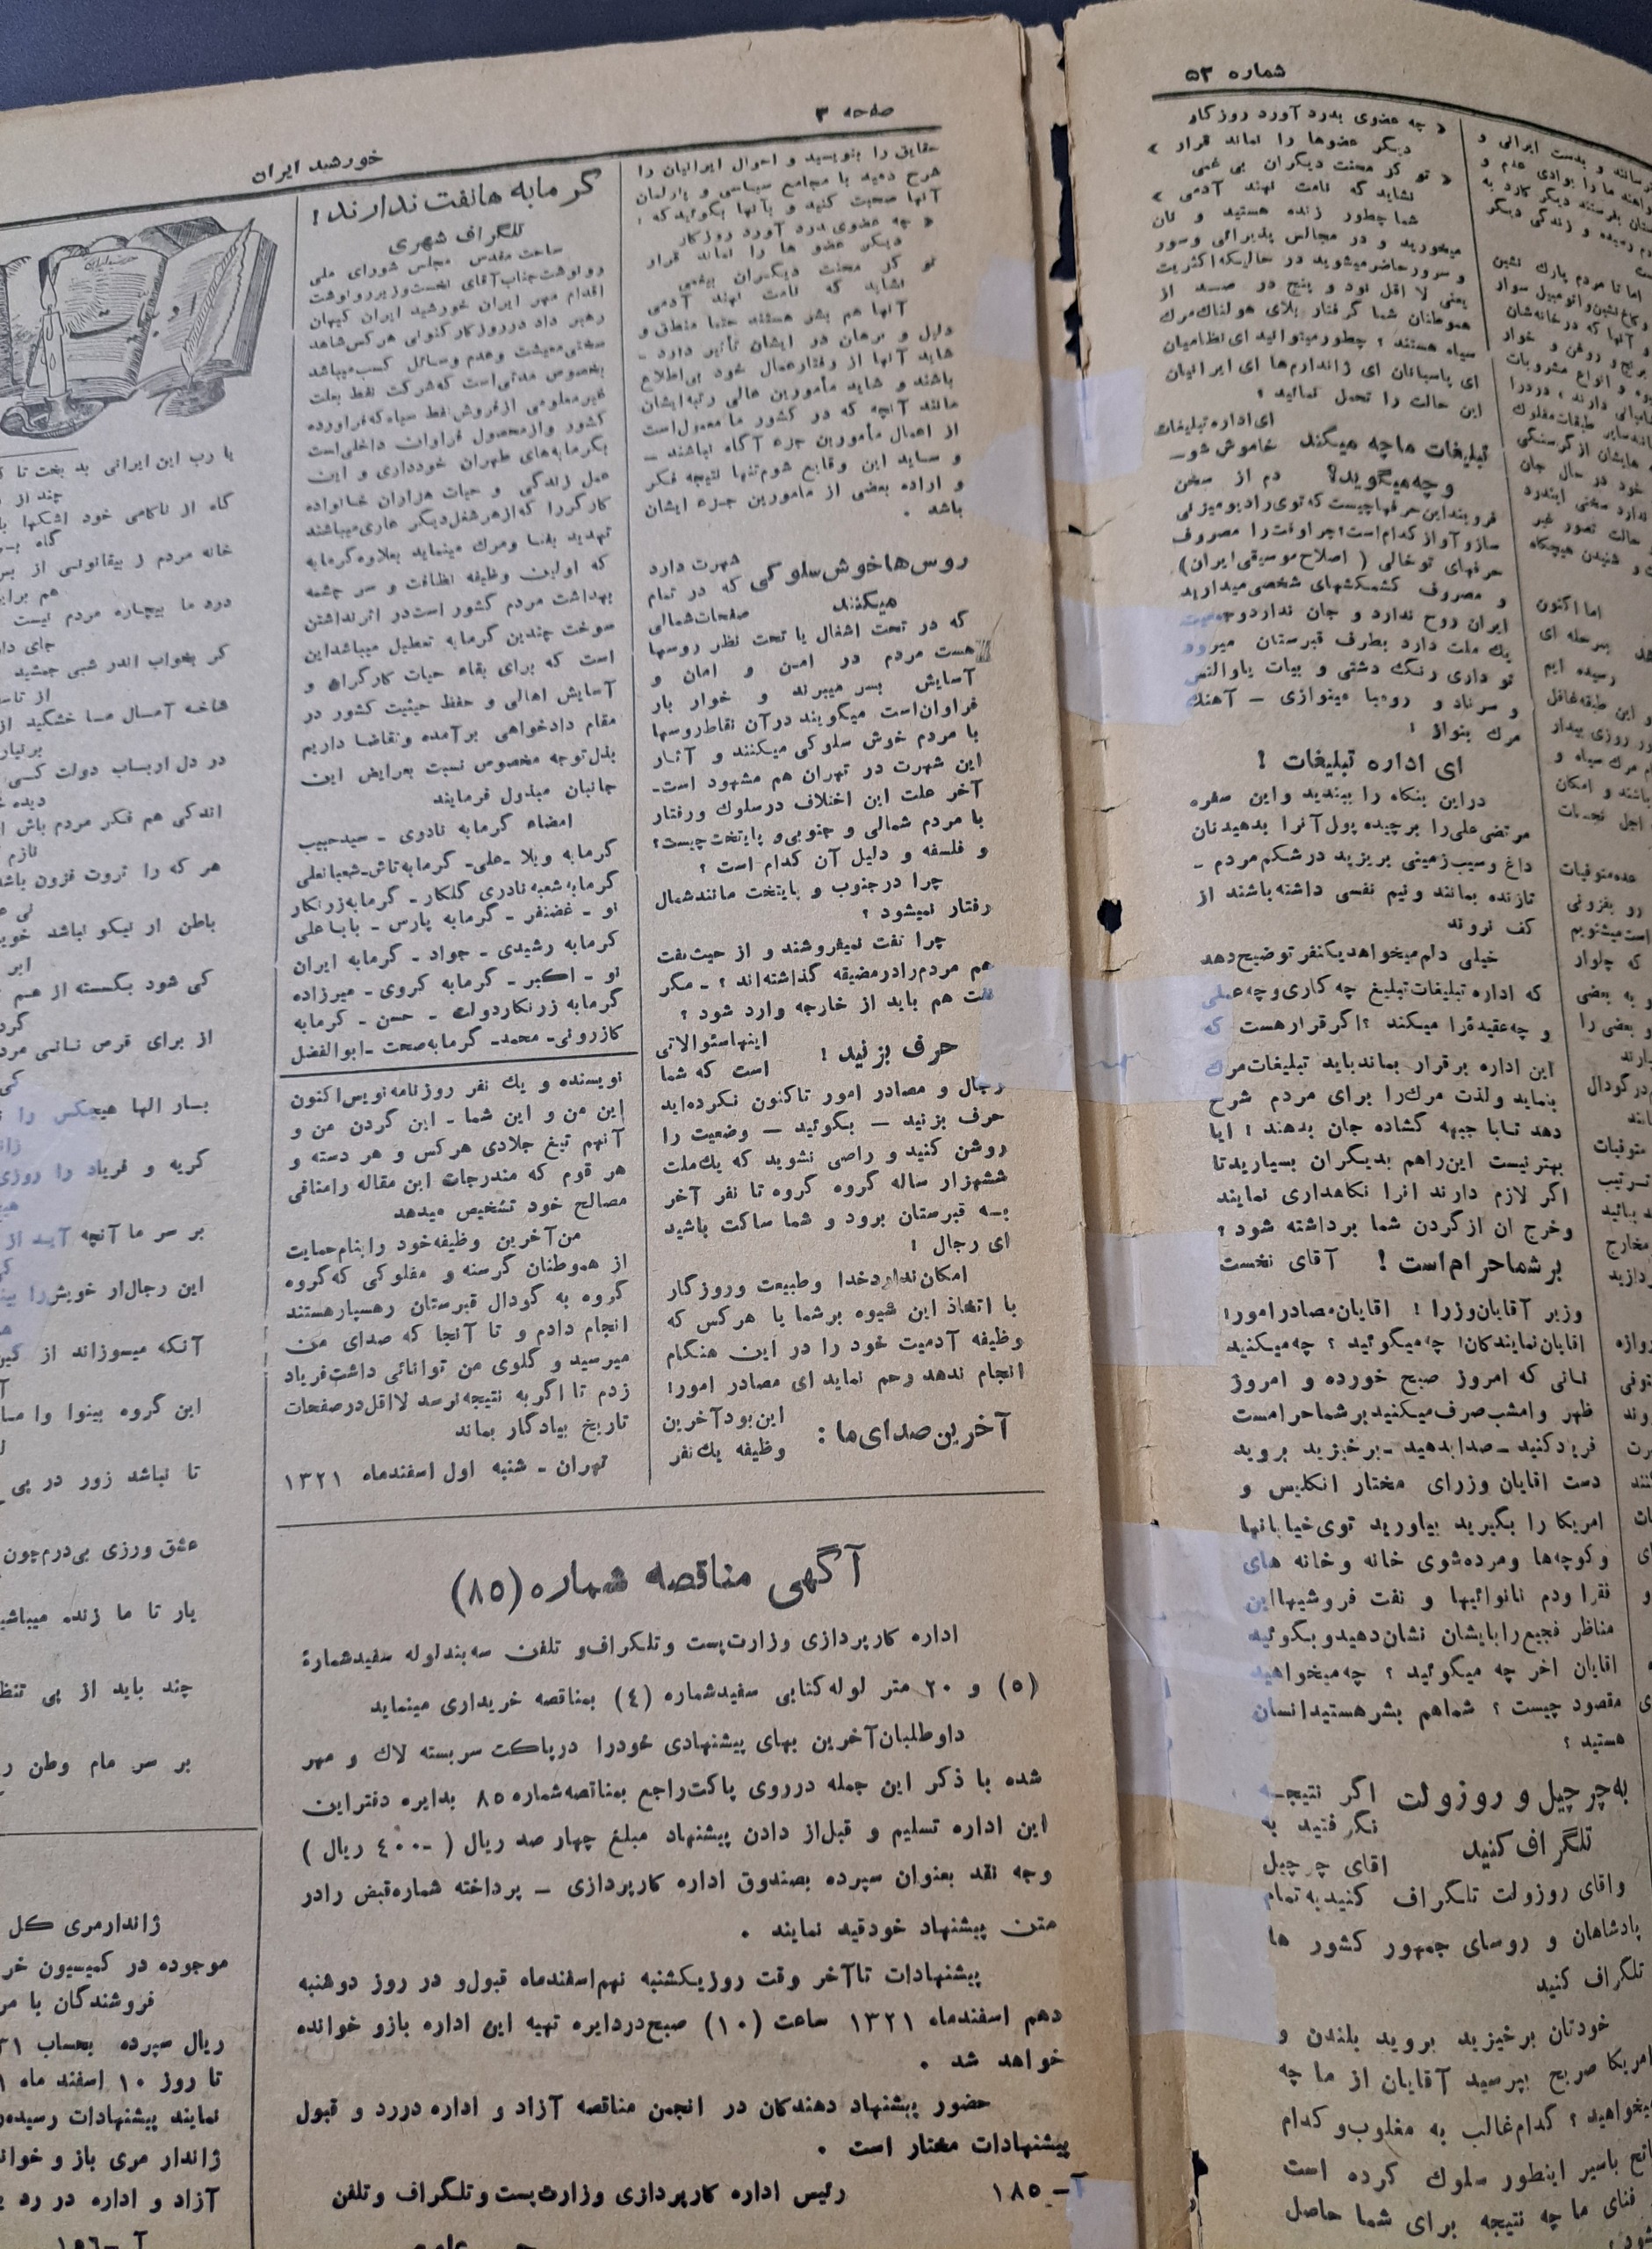 شماره ۵۳
« چه عضوی بدرد آورد روزگار
دیگر عضوها را نماند قرار »
« تو کز محنت دیگران بی غمی
نشاید که نامت نهند آدمی »
شما چطور زنده هستید و نان
میخورید و در مجالس پذیرائی وسور
و سرور حاضر میشوید در حالیکه اکثریت
یعنی لا اقل نود و پنج در صد از
هموطنان شما گرفتار بلای هولناک مرگ
سیاه هستند ؟ چطور میتوانید ای نظامیان
ای پاسبانان ای ژاندارم‌ها ای ایرانیان
این حالت را تحمل نمائید ؟
ای اداره تبلیغات
تبلیغات ما چه میکند
خاموش شو ـ
و چه میگوید؟
دم از سخن
فرو بند این حرفها چیست که توی رادیو میزنی
ساز و آواز کدام است؟ چرا وقت را مصروف
حرفهای تو خالی ( اصلاح موسیقی ایران )
و مصروف کشمکشهای شخصی میدارید
ایران روح ندارد و جان ندارد وجمعیت
یك ملت دارد بطرف قبرستان میرود
تو داری رنگ دشتی و بیات یا والنس
و سرناد و رومبا مینوازی ـ آهنك
مرك بنواز !
ای اداره تبلیغات !
در این بنگاه را ببندید و این سفره
مرتضی علی را برچیده پول آنرا بدهید نان
داغ وسیب زمینی بریزید در شکم مردم ـ
تازنده بمانند و نیم نفسی داشته باشند از
کف نروند
خیلی دلم میخواهد یکنفر توضیح دهد
که اداره تبلیغات تبلیغ چه کاری و چه عملی
و چه عقیده را میکند ؟ اگر قرار هست که
این اداره برقرار بماند باید تبلیغات مرك
بنماید ولذت مرك را برای مردم شرح
دهد تا با جبهه گشاده جان بدهند ! ایا
بهتر نیست این راهم بدیگران بسپارید تا
اگر لازم دارند انرا نگاهداری نمایند
وخرج ان از گردن شما برداشته شود ؟
بر شما حرام است !
آقای نخست
وزیر آقایان وزرا ! اقایان مصادر امور!
اقایان نمایندگان! چه میگوئید ؟ چه میکنید
نانی که امروز صبح خورده و امروز
ظهر و امشب صرف میکنید بر شما حرامست
فرید کنید ـ صدا بدهید ـ برخیزید بروید
دست اقایان وزرای مختار انگلیس و
امریکا را بگیرید بیاورید توی خیابانها
و کوچه‌ها ومرده شوی خانه و خانه های
فقرا ودم نانوائیها و نفت فروشیها این
مناظر فجیع را بایشان نشان دهید و بگوئید
اقایان اخر چه میگوئید ؟ چه میخواهید
مقصود چیست ؟ شماهم بشر هستید انسان
هستید ؟
به چرچیل و روزولت
تلگراف کنید
اگر نتیجه
نگرفتید به
اقای چرچیل
واقای روزولت تلگراف کنید به تمام
پادشاهان و روسای جمهور کشور ها
تلگراف کنید
خودتان برخیزید بروید بلندن و
امریکا صریح بپرسید آقایان از ما چه
میخواهید ؟ کدام غالب به مغلوب و کدام
فاتح باسیر اینطور سلوك کرده است
فنای ما چه نتیجه برای شما حاصل
صفحه ۳
خورشید ایران
حقایق را بنویسید و احوال ایرانیان را
شرح دهید با مجامع سیاسی و پارلمان
آنها صحبت کنید و بآنها بگوئید که :
« چه عضوی بدرد آورد روزگار
دیگر عضو ها را نماند قرار
تو کز محنت دیگران بیغمی
نشاید که نامت نهند آدمی
آنها هم بشر هستند حتما منطق و
دلیل و برهان در ایشان تأثیر دارد ـ
شاید آنها از رفتار عمال خود بی‌اطلاع
باشند و شاید مأمورین عالی رتبه ایشان
مانند آنچه که در کشور ما معمول است
از اعمال مأمورین جزء آگاه نباشند ـ
و شاید این وقایع شوم تنها نتیجه فکر
و اراده بعضی از مامورین جزء ایشان
باشد .
روس‌ها خوش سلوکی
میکنند
شهرت دارد
که در تمام
صفحات شمالی
که در تحت اشغال یا تحت نظر روسها
هست مردم در امن و امان و
آسایش بسر میبرند و خوار بار
فراوان است میگویند در آن نقاط روسها
با مردم خوش سلوکی میکنند و آثار
این شهرت در تهران هم مشهود است ـ
آخر علت این اختلاف در سلوك و رفتار
با مردم شمالی و جنوبی و پایتخت چیست؟
و فلسفه و دلیل آن کدام است ؟
چرا در جنوب و پایتخت مانند شمال
رفتار نمیشود ؟
چرا نفت نمیفروشند و از حیث نفت
هم مردم را در مضیقه گذاشته‌اند ؟ ـ مگر
نفت هم باید از خارجه وارد شود ؟
حرف بزنید !
اینها سئوالاتی
است که شما
رجال و مصادر امور تاکنون نکرده‌اید
حرف بزنید ـ بگوئید ـ وضعیت را
روشن کنید و راضی نشوید که یك ملت
ششهزار ساله گروه گروه تا نفر آخر
به قبرستان برود و شما ساکت باشید
ای رجال !
امکان ندارد خدا وطبیعت و روزگار
با اتخاذ این شیوه بر شما یا هر کس که
وظیفه آدمیت خود را در این هنگام
انجام ندهد رحم نماید ای مصادر امور!
آخرین صدای ما :
این بود آخرین
وظیفه یك نفر
گرمابه ها نفت ندارند!
تلگراف شهری
ساحت مقدس مجلس شورای ملی
رونوشت جناب آقای نخست وزیر رونوشت
اقدام مهر ایران خورشید ایران کیهان
رهبر داد در روزگار کنونی هر کس شاهد
سختی معیشت و عدم وسائل کسب میباشد
بخصوص مدتی است که شرکت نفط بعلت
غیر معلومی از فروش نفط سیاه که فراورده
کشور واز محصول فراوان داخلی است
بگرمابه‌های طهران خودداری و این
عمل زندگی و حیات هزاران خانواده
کارگر را که از هر شغل دیگر عاری میباشند
تهدید بفنا و مرك مینماید بعلاوه گرمابه
که اولین وظیفه نظافت و سر چشمه
بهداشت مردم کشور است در اثر نداشتن
سوخت چندین گرمابه تعطیل میباشد این
است که برای بقاء حیات کارگران و
آسایش اهالی و حفظ حیثیت کشور در
مقام دادخواهی برآمده وتقاضا داریم
بذل توجه مخصوص نسبت بعرایض این
جانبان مبذول فرمایند
امضاء گرمابه نادری ـ سید حبیب
گرمابه ویلا ـ علی ـ گرمابه تاش ـ شعبانعلی
گرمابه شعبه نادری گلکار ـ گرمابه زرنگار
نو ـ غضنفر ـ گرمابه پارس ـ بابا علی
گرمابه رشیدی ـ جواد ـ گرمابه ایران
نو ـ اکبر ـ گرمابه کروی ـ میرزاده
گرمابه زرنگار دولت ـ حسن ـ گرمابه
کازرونی ـ محمد ـ گرمابه صحت ـ ابوالفضل
نویسنده و یك نفر روزنامه نویس اکنون
این من و این شما ـ این گردن من و
آنهم تیغ جلادی هر کس و هر دسته و
هر قوم که مندرجات این مقاله را منافی
مصالح خود تشخیص میدهد
من آخرین وظیفه خود را بنام حمایت
از هموطنان گرسنه و مفلوکی که گروه
گروه به گودال قبرستان رهسپار هستند
انجام دادم و تا آنجا که صدای من
میرسید و گلوی من توانائی داشت فریاد
زدم تا اگر به نتیجه نرسد لااقل در صفحات
تاریخ بیادگار بماند
تهران ـ شنبه اول اسفندماه ۱۳۲۱
آگهی مناقصه شماره (۸۵)
اداره کارپردازی وزارت پست و تلگراف و تلفن سه بند لوله سفید شماره
(٥) و ۲۰ متر لوله کتابی سفید شماره (٤) بمناقصه خریداری مینماید
داوطلبان آخرین بهای پیشنهادی خود را در پاکت سربسته لاك و مهر
شده با ذکر این جمله در روی پاکت راجع بمناقصه شماره ۸۵ بدایره دفتر این
این اداره تسلیم و قبل از دادن پیشنهاد مبلغ چهار صد ریال ( ـ٤٠٠ ریال )
وجه نقد بعنوان سپرده بصندوق اداره کارپردازی ـ پرداخته شماره قبض را در
متن پیشنهاد خود قید نمایند .
پیشنهادات تا آخر وقت روز یکشنبه نهم اسفندماه قبول و در روز دوشنبه
دهم اسفندماه ۱۳۲۱ ساعت (۱۰) صبح در دایره تهیه این اداره باز و خوانده
خواهد شد .
حضور پیشنهاد دهندگان در انجمن مناقصه آزاد و اداره در رد و قبول
پیشنهادات مختار است .
آ ـ ۱۸۵
رئیس اداره کارپردازی وزارت پست و تلگراف و تلفن
یا رب این ایرانی بد بخت تا
چند از
گاه از ناکامی خود اشکها
گاه
خانه مردم ز بیقانونی از
هم برای
درد ما بیچاره مردم نیست
جای
گر بخواب اندر شبی جمشید
از
شاخه آمال ما خشگید از
در دل ارباب دولت کسی
دیده
اندکی هم فکر مردم باش
نازم
هر که را ثروت فزون باشد
باطن ار نیکو نباشد
ابر
کی شود بگسسته از هم
از برای قرص نانی
بار الها هیچکس را
گریه و فریاد را روزی
بر سر ما آنچه آید از
این رجال ار خویش را
آنکه میسوزاند از
این گروه بینوا وا
تا نباشد زور در پی
عشق ورزی بی‌درم چون
یار تا ما زنده میباشیم
چند باید از پی
بر سر مام وطن
ژاندارمری کل
موجوده در کمیسیون
فروشندگان با
ریال سپرده بحساب ۳۱
تا روز ۱۰ اسفند ماه
نمایند پیشنهادات
ژاندار مری باز و
آزاد و اداره در رد